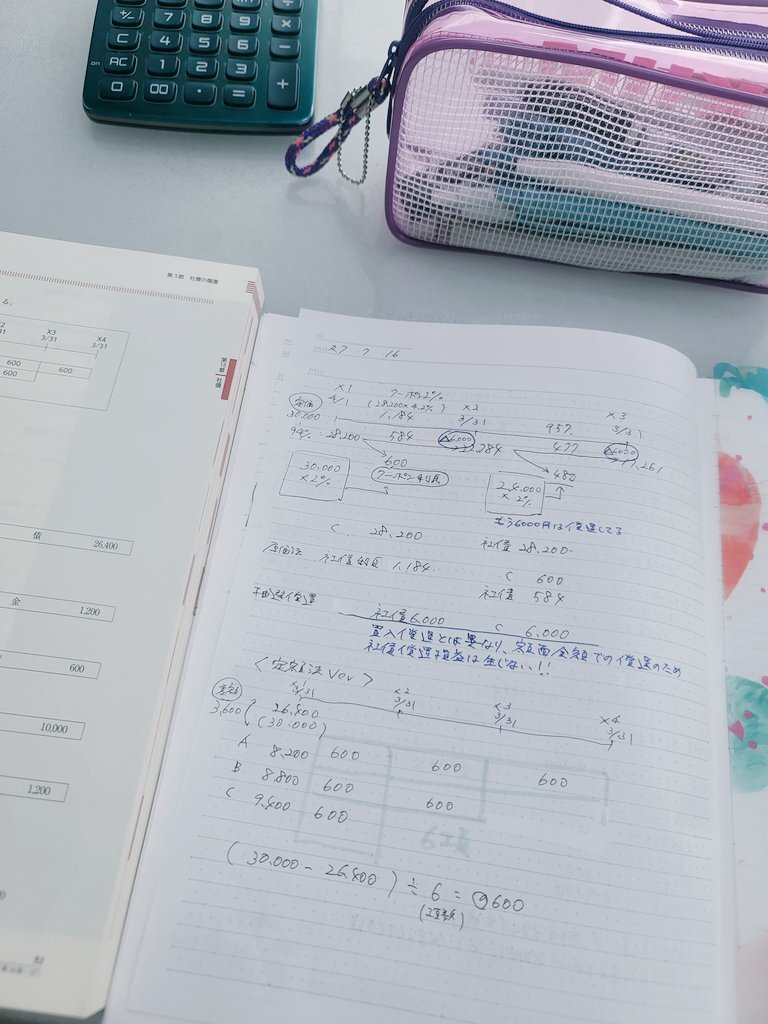 +/- 7 8 9 ×
C 4 5 6 -
ON AC 1 2 3 +
0 00 · =
第3節 社債の償還
る。
X3 X4
3/31 3/31
600 600
600
第15章 社債
債 26,400
金 1,200
600
10,000
1,200
No.
DATE 27・7・16
TITLE
定価 X1 4/1 クーポン2%
(28,200×4.2%) X2 3/31 X3 3/31
30,000 1,184 957
94% 28,200 584 △6,000 22,784 477 △6,000 17,261
600 480
30,000 ×2% クーポン利息 24,000 ×2%
もう6000円は償還してる
C 28,200 社債 28,200
社債利息 1,184 C 600
社債 584
抽選償還
社債 6,000 C 6,000
買入償還とは異なり、額面金額での償還のため
社債償還損益は生じない!!
<定額法Ver>
差額 X1 3/31 X2 3/31 X3 3/31 X4 3/31
3,600 26,400
(30,000)
A 8,200 600 600 600
B 8,800 600 600
C 9,400 600
6項
(30,000 - 26,400) ÷ 6 = @600
(項数)